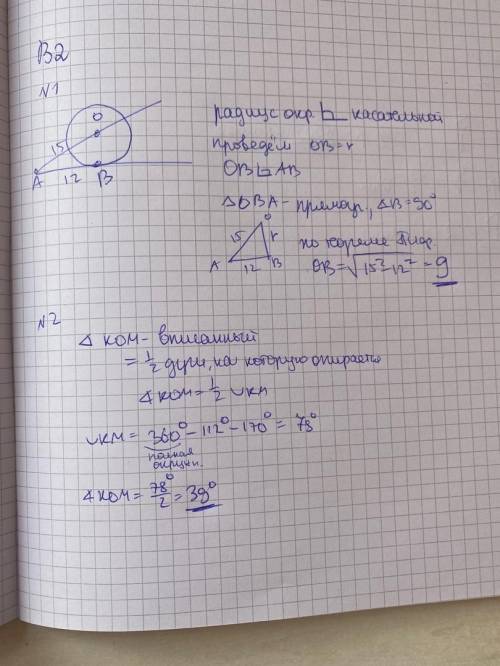 В2
N1
радиус окр. ⊥ касательной
проведём OB=r
OB⊥AB
O
15
A 12 B
△OBA - прямоуг., ∠B=90°
O
15 r
A 12 B
по теореме Пиф.
OB=√15²-12² = 9
N2
∠КОМ - вписанный
= 1/2 дуги, на которую опирается
∠КОМ = 1/2 ◡КМ
◡КМ = 360° - 112° - 170° = 78°
полная
окружн.
∠КОМ = 78°/2 = 39°